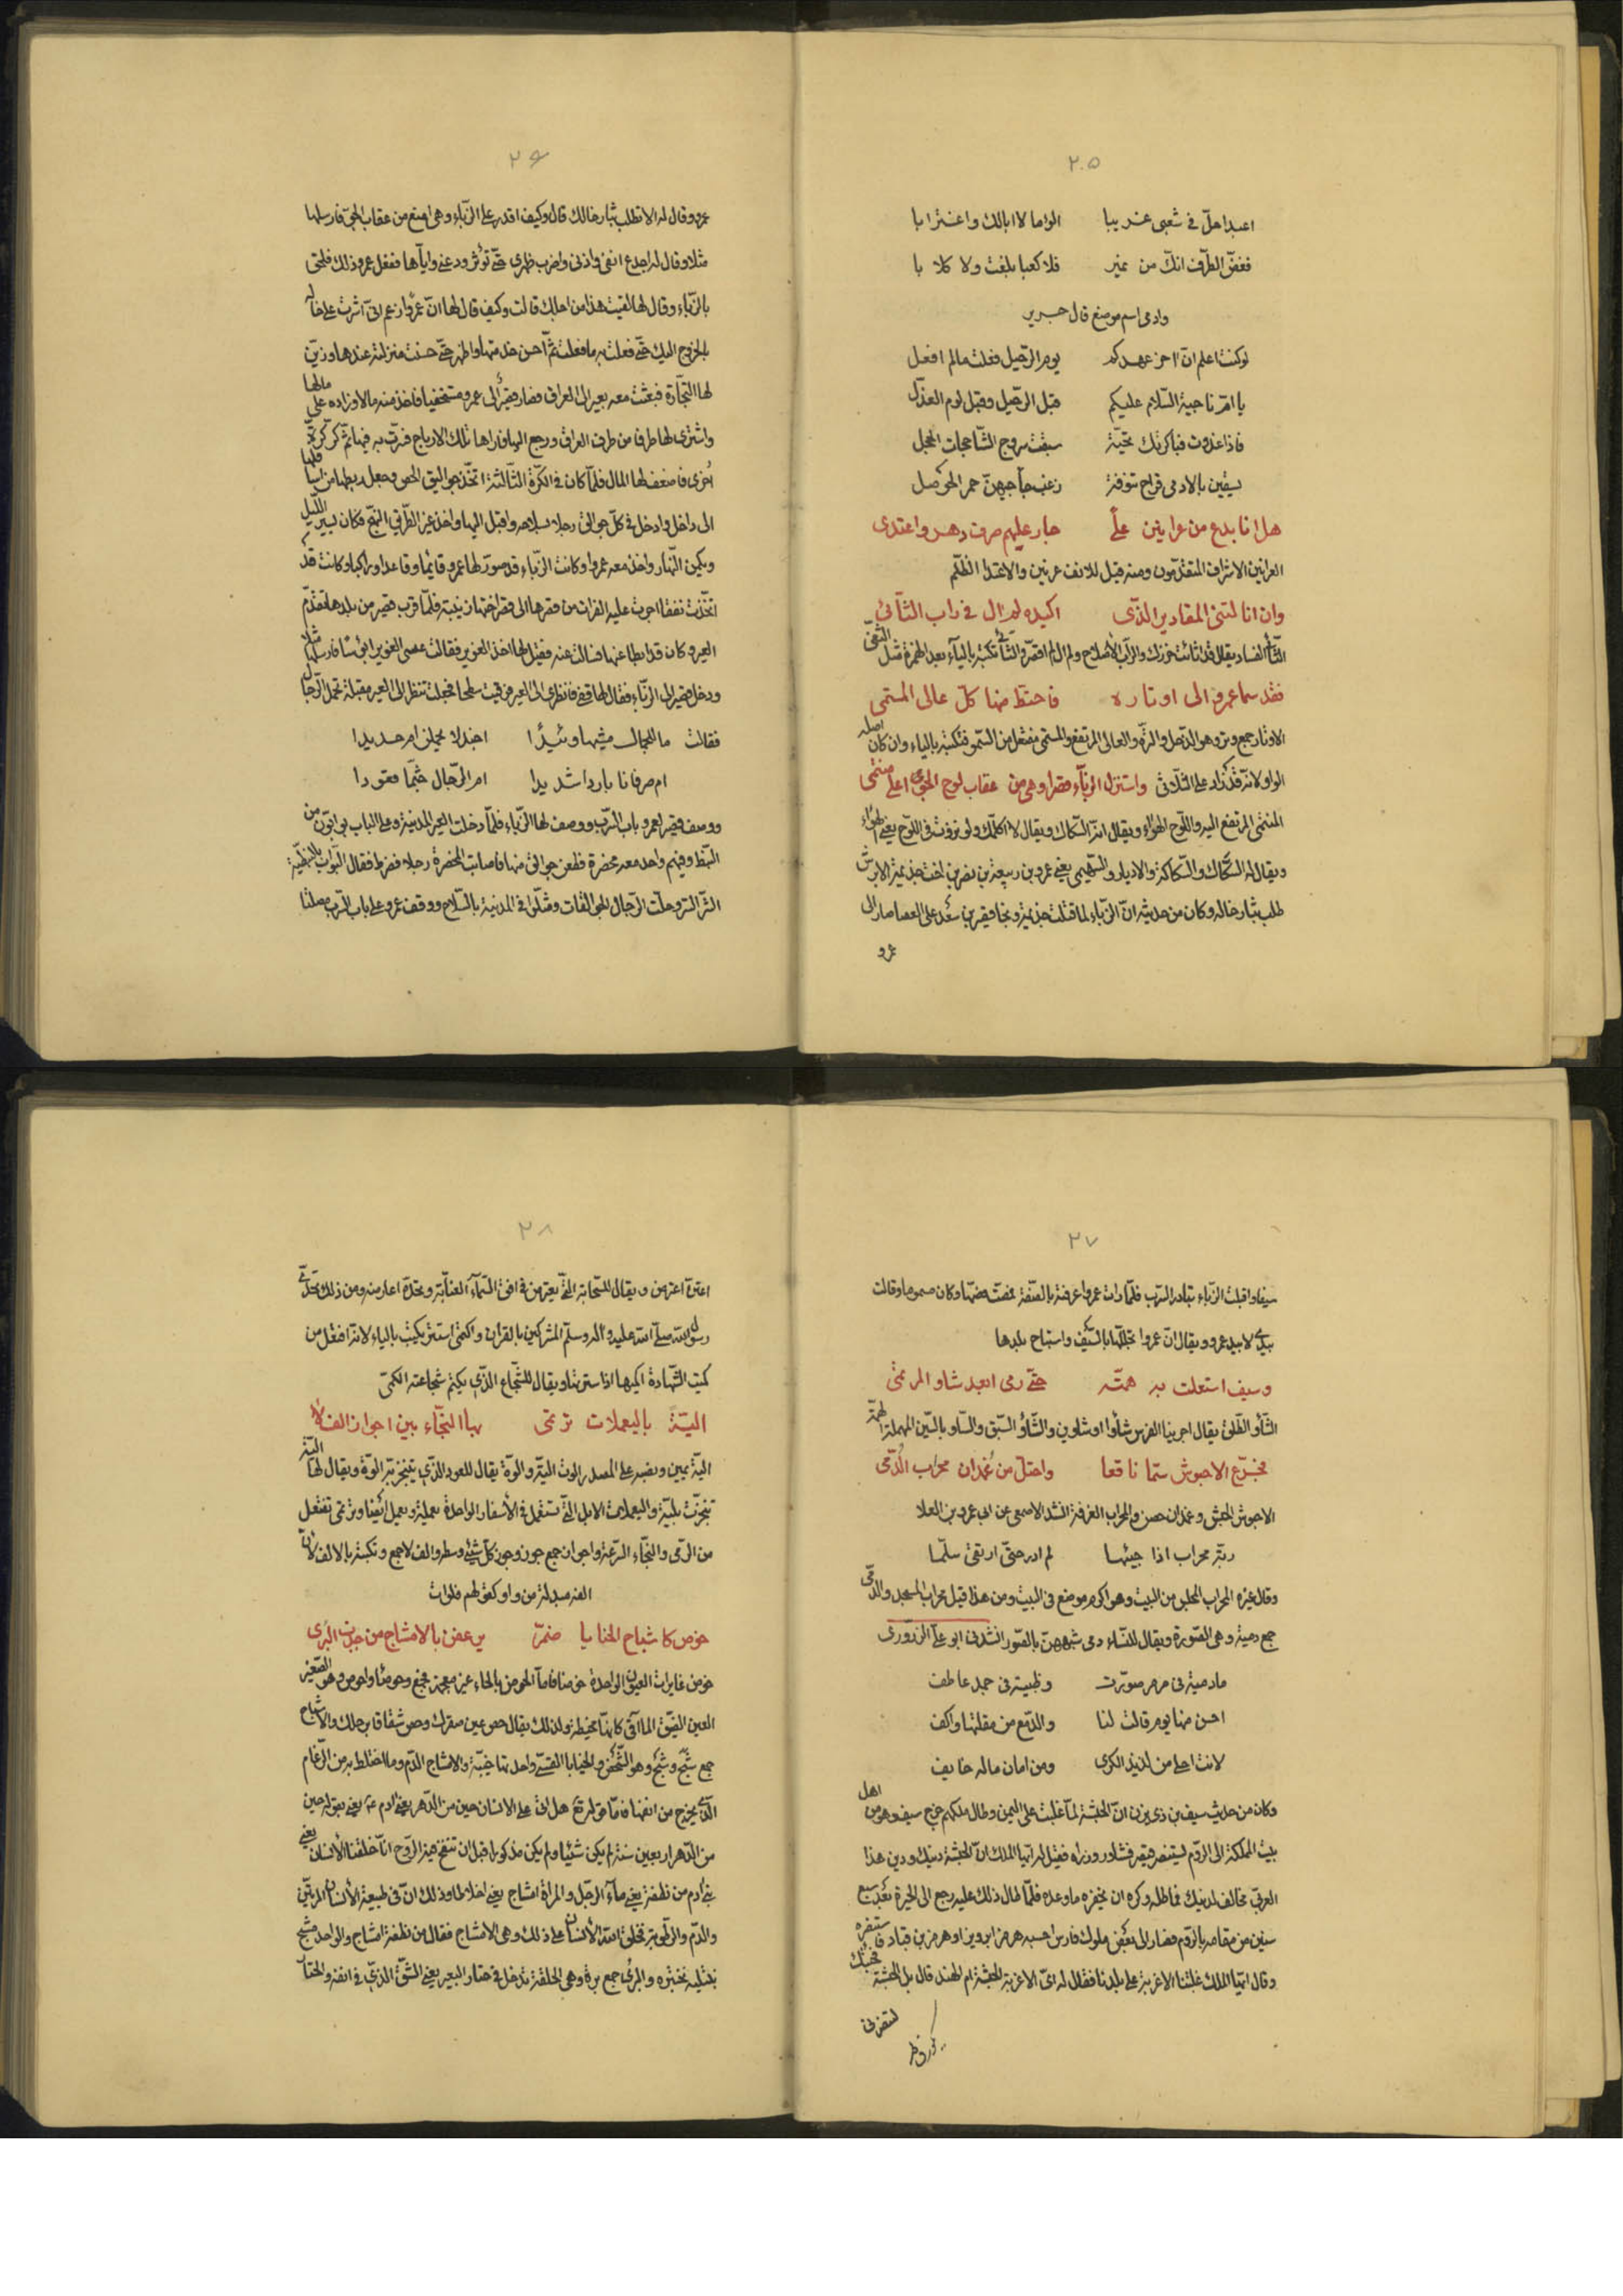 ٢٠٥
اعبدا حلّ في شعبى غريبا الؤما لا ابالك واغترابا
فغضّ الطرف انّك من نمير فلا كعبا بلغت ولا كلابا
وادمى اسم موضع قال جرير
لو كنت اعلم انّ اخر عهدكم يوم الرّحيل فعلت مالم افعل
يا امّ ناجية السّلام عليكم قبل الرّحيل وقبل لوم العذّل
فاذا غدوت فباكرتك تحيّة سبقت سروج الشّاحجات الحجل
يسقين بالادمى فراخ تنوفة زغب حواجبهنّ حمر الحوصل
هل انا بدع من عرانين على جار عليهم صرف دهر واعتدى
العرانين الاشراف المتقدّمون ومنه قيل للانف عرنين والاعتدا الظلم
وان انا لتنى المقادير الذّى اكيده لم ال في راب الثّأئ
فقد سما عمرو الى اوتاره فاحتطّ منها كلّ عالى المستمى
الاوتار جمع وتر وهو الذحل والترة والعالى المرتفع والمستمى مفتعل من السّمو فتكتبه بالياء وان كان اصله
الواو لانّه قد زاد على الثلاثى واستنزل الزبّاء قسرا وهى من عقاب لوح الجوّ اعلى منتمى
المنتمى المرتفع اليه واللّوح الهواء ويقال انّه السّكاك ويقال لا اكلمك ولو نزوت في اللّوح يعنى الهواء
ويقال له السكاك والسّكاكة يعنى عمرو بن ربيعة بن نصر بن اخت جذيمة الابرش
طلب بثار خاله وكان من حديثه انّ الزّباء لما قتلت جذيمة ونجا قصير بن سعد على العصا صار الى
عمرو
٢٦
عمرو وقال له الا تطلب بثار خالك قال وكيف اقدر على الزّباء وهى امنع من عقاب الجوّ فارسلها
مثلا وقال له اجدع انفى واذنى واضرب ظهرى حتّى تؤثر ودعنى وايّاها ففعل عمرو ذلك فلحق
بالزّباء وقال لها لقيت هذا من اجلك قالت وكيف قال لها انّ عمرا زعم انّى اشرت على خاله
بالخروج اليك حتّى فعلت به ما فعلت ثمّ احسن خدمتها واظهر حتّى حسنت منزلته عندها وزيّن
لها التّجارة فبعثت معه بعير الى العراق فصار قصير الى عمرو مستخفيا فاخذ منه مالا وزاده على مالها
واشترى لها طرفا من طرف العراق ورجع اليها فاراها تلك الارباح فسرّت به ثمّ كرّ كرّة
اخرى فاضعف لها المال فلمّا كان في الكرّة الثّالثة اتّخذ جواليق وجعل ربطها من اسافلها
الى داخل وادخل في كلّ جوالق رجلا بسلاحه واقبل اليها واخذ غير الطّريق النهج فكان يسير اللّيل
ويكمن النّهار واخذ معه عمروا وكانت الزّباء قد صوّر لها عمرو قائما وقاعدا وراكبا وكانت قد
اتّخذت نفقا اجرت عليه الفرات من قصرها الى قصر اختها زينبة فلمّا قرب قصير من بلدها تقدّم
العير وكان قد ابطا عنها فسالت عنه فقيل لها اخذ الغوير فقالت عسى الغوير ابؤسا فارسلتها مثلا
ودخل قصير الى الزّباء فقال لها قفى فانظرى الى العير فرقيت سطحا فجعلت تنظر الى العير مقبلة تحمل الرّجال
فقالت ما للجمال مشيها وئيدا اجندلا يحملن ام حديدا
ام صرفانا باردا شديدا ام الرّجال جثّما قعودا
ووصف قصير لعمرو باب السّرب ووصف لها الزّباء فلمّا دخلت العير المدينة وعلى الباب بوّابون من
النّبط وفيهم واحد معه مخصرة فطعن جوالق منها فاصابت المخصرة رجلا فضرط فقال البوّاب بالنبطيّة
وحلّت الرّجال الجوالقات ومثلوا في المدينة بالسّلاح ووقف عمرو على باب السّرب مصلتا
٢٧
سيفا واقبلت الزّباء تبادر السّرب فلمّا رات عمروا عرفته بالصّفة فمصّت فصّها وكان مسموما وقالت
بيدى لا بيد عمرو ويقال انّ عمروا جلّلها بالسّيف واستباح بلدها
وسيف استعلت به همّته حتّى رمى ابعد شاو المرتمى
الشّأو الطّلق يقال اجرينا الفرس شأوا او شاوين والشّأو السّبق والسّاو بالسّين المهملة الهمّة
فجرّع الاحبوش سمّا ناقعا واحتلّ من غمدان محراب الدّمى
الاحبوش الحبش وغمدان حصن والمحراب الغرفة انشد الاصمعى عن ابى عمرو بن العلا
ربّة محراب اذا جئتها لم ادر حتّى ارتقى سلّما
وقال غيره المحراب المجلس من البيت وهو اكرم موضع في البيت ومن هذا قيل محراب المسجد والدّمى
جمع دمية وهى الصّورة ويقال للنّساء دمى شبههنّ بالصّور انشدنى ابو على الزّوزرى
مادمية في مرمر صوّرت وظبية في خمد عاطف
احسن منها يوم قالت لنا والدّمع من مقلتها واكف
لانت احلى من لذيذ الكرى ومن امان ماله خايف
وكان من حديث سيف بن ذى يزن انّ الحبشة لمّا غلبت على اليمن وطال ملكهم خرج سيف وهو من اهل
بيت المملكة الى الرّوم ليستنصر قيصر فشاور وزراه فقيل له ايّها الملك انّ الحبشة دينك ودين هذا
العربىّ مخالف لدينك فماطله وكره ان يخفره ما وعده فلمّا طال ذلك عليه رجع الى الحيرة بعد سبع
سنين من مقامه بالرّوم فصار الى بعض ملوك فارس احسبه هرمز ابرويز او هرمز بن قباد
وقال ايّها الملك غلبتنا الاغربة على بلدنا فقال له اىّ الاغربة الحبشة ام الهند قال بل الحبشة
لتنصرنى
٢٨
اعترّه اعترض ويقال للسّحابة الّتى تعترض في افق السّمآء
رسول الله صلّى الله عليه واله وسلّم المشركين بالقران واكتمى استتر يكتب بالياء لانّه افتعل من
كميت الشّهادة اكميها اذا سترتها ويقال للشّجاع الذّى يكتم شجاعته الكمىّ
اليّة باليعملات ترتمى بها النّجاء بين اجواز الفلا
اليّة يمين ونصبه على المصدر
واليعملات الابل الّتى تستعمل في الأسفار الواحدة يعملة ويعمل ايضا وترتمى تفتعل
من الرّمى والنّجاء السّرعة واجواز جمع جوز وجوز كلّ شيئ وسطه والفلا جمع وتكتبه بالالف لانّ
الفه مبدلة من واو كقولهم فلوات
خوص كاشباح الحنايا ضمّر يرعفن بالامشاج من جذب البرى
خوص غايرات العيون الواحدة خوصا فامّا الحوص بالحاء غير معجمة
جمع شبح وشبح وهو الشّخص والحنايا القسىّ واحدتها حنيّة والامشاج الدّم وما اختلط به من الرّغام
الّذى يخرج من انفها فامّا قوله تع هل اتى على الانسان حين من الدّهر يعنى ادم ع م يعنى بقوله حين
من الدّهر اربعين سنة لم يكن شيئا ولم يكن مذكورا قبل ان تنفخ فيه الرّوح انّا خلقنا الأنسان يعنى
بنى ادم من نطفة يعنى مآء الرّجل والمراة امشاج يعنى اخلاطا وذلك انّ في طبيعة الأنسان المرّتين
والدّم والرّطوبة فخلق الله الأنسان على ذلك وهى الامشاج فقال من نطفة امشاج والواحد مشج
نبتليه نختبره والبرى جمع برة وهى الحلقة تدخل في خشار البعير يعنى الشّق الّذى في انفه